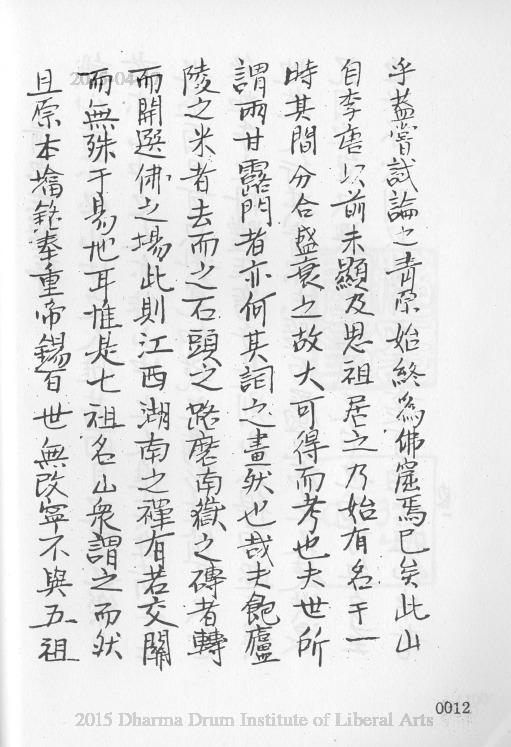 乎蓋嘗試論之青原始終為佛窟焉已矣此山
自李唐以前未顯及思祖居之乃始有名于一
時其間分合盛衰之故大可得而考也夫世所
謂兩甘露門者亦何其詞之畫然也哉夫飽廬
陵之米者去而之石頭之路磨南嶽之磚者轉
而開選佛之場此則江西湖南之禪有若交關
而無殊于易地耳惟是七祖名山衆謂之而然
且原本塔銘奉重帝錫百世無改寧不與五祖
0012
2015 Dharma Drum Institute of Liberal Arts